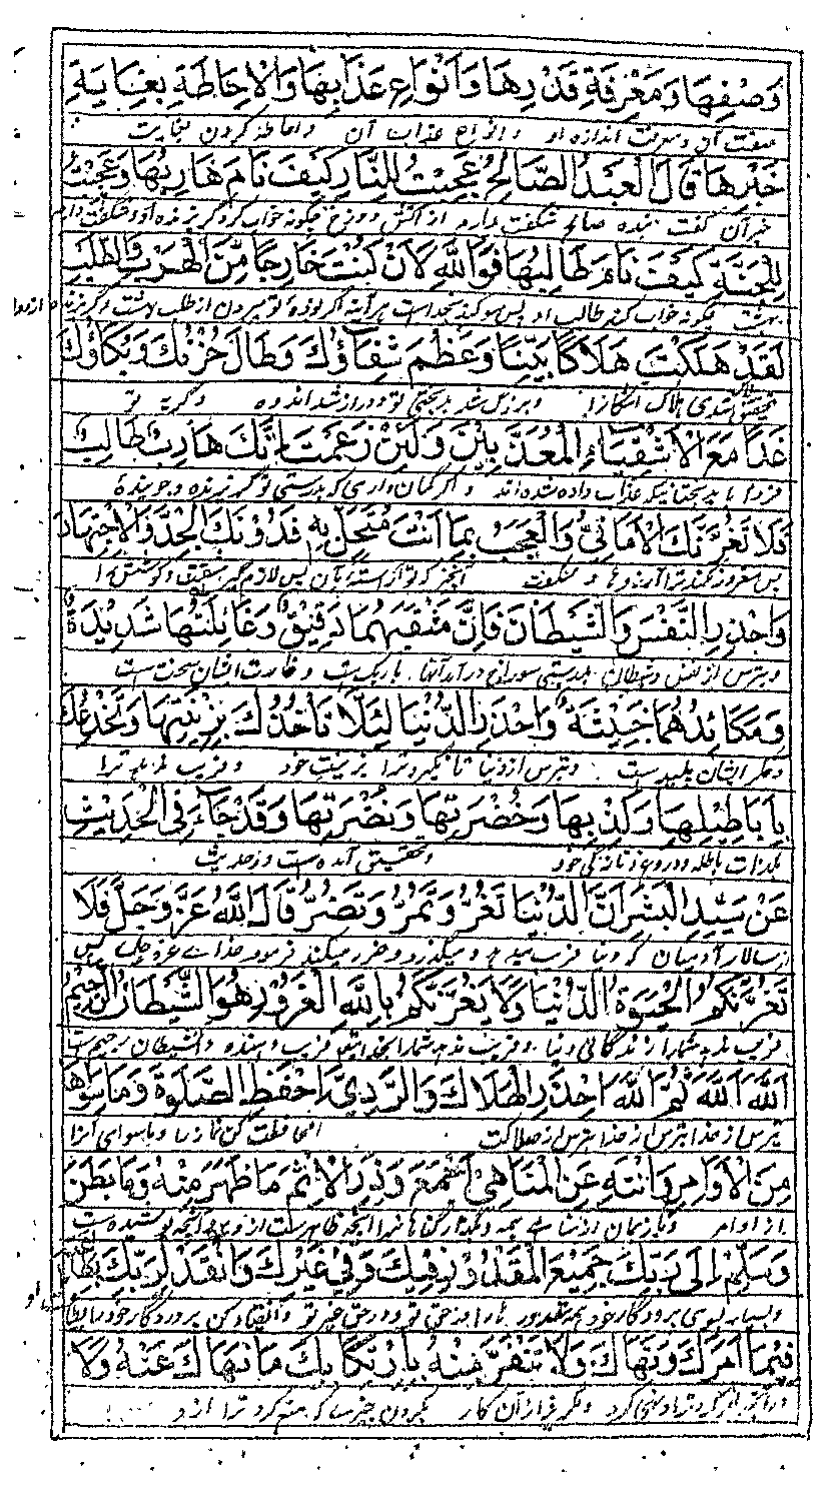 وَصْفِهَا وَمَعْرِفَةِ قَدْرِهَا وَأَنْوَاعِ عَذَابِهَا وَالْإِحَاطَةِ بِغَايَةِ
صفت آن و معرفت اندازه او و انواع عذاب آن و احاطه کردن بغایت
خَبَرِهَا قَالَ الْعَبْدُ الصَّالِحُ عَجِبْتُ لِلنَّارِ كَيْفَ نَامَ هَارِبُهَا وَعَجِبْتُ
خبر آن گفت بنده صالح شگفت دارم از آتش دوزخ چگونه خواب کرد گریزنده او و شگفت دارم
لِلْجَنَّةِ كَيْفَ نَامَ طَالِبُهَا فَوَاللَّهِ لَأَنْ كُنْتَ خَارِجًا مِّنَ الْهَرَبِ وَالطَّلَبِ
بهشت چگونه خواب کند طالب او پس سوگند بخداست هر آینه اگر بوده تو بیرون از طلب بهشت و گریزنده از
لَقَدْ هَلَكْتَ هَلَاكًا بَيِّنًا وَعَظُمَ شَقَاؤُكَ وَطَالَ حُزْنُكَ وَبُكَاؤُكَ
تحقیق شدی هلاک آشکارا و بزرگ شد بدبختی تو و دراز شد اندوه و گریه تو
غَدًا مَعَ الْأَشْقِيَاءِ الْمُعَذَّبِينَ وَلَئِنْ زَعَمْتَ إِنَّكَ هَارِبٌ طَالِبٌ
فردا با بدبختانیکه عذاب داده شده اند و اگر گمان داری که بدرستی تو گریزنده و جوینده
فَلَا تَغُرَّنَّكَ الْأَمَانِيُّ وَالْعَجَبُ بِمَا أَنْتَ مُتَحَلٍّ بِهِ فَدُونَكَ الْجِدَّ وَالْاِجْتِهَادَ
پس مغرور نکند ترا آرزوها و شگفت آنچه که تو آراسته بآن پس لازم گیر و کوشش را
وَاحْذَرِ النَّفْسَ وَالشَّيْطَانَ فَإِنَّ مَنْقَبَهُمَا دَقِيقٌ وَغَائِلَتُهَا شَدِيدَةٌ
و بترس از نفس و شیطان بدرستی سوراخ در آمد آنها باریک است و ایشان سخت است
وَمَكَائِدُهُمَا خَبِيثَةٌ وَاحْذَرِ الدُّنْيَا لِئَلَّا تَأْخُذَكَ بِزِينَتِهَا وَتَخْدَعَكَ
و مکر ایشان پلید است و بترس از دنیا تا نگیرد ترا بزینت خود و فریب ندهد ترا
بِأَبَاطِيلِهَا وَكِذْبِهَا وَخُضْرَتِهَا وَنُضْرَتِهَا وَقَدْ جَاءَ فِي الْحَدِيثِ
باطله و دروغ و تازگی خود و تحقیق آمده است در حدیث
عَنْ سَيِّدِ الْبَشَرِ أَنَّ الدُّنْيَا تَغُرُّ وَتَمُرُّ وَتَضُرُّ قَالَ اللَّهُ عَزَّ وَجَلَّ فَلَا
از سالار آدمیان که دنیا فریب میدهد و میگذرد و ضرر میکند فرمود خدای عز و جل پس
تَغُرَّنَّكُمُ الْحَيٰوةُ الدُّنْيَا وَلَا يَغُرَّنَّكُمْ بِاللَّهِ الْغَرُورُ هُوَ الشَّيْطَانُ الرَّجِيمُ
فریب ندهد شمارا زندگانی دنیا و فریب ندهد شمارا بخدا فریبنده و آن شیطان رجیم است
اللَّهَ اللَّهَ ثُمَّ اللَّهَ احْذَرِ الْهَلَاكَ وَالرَّدِيَّ احْفَظِ الصَّلٰوةَ وَمَا سِوَاهَا
بترس از خدا بترس از خدا بترس از هلاکت محافظت کن نماز را و ماسوای آنرا
مِنَ الْأَوَامِرِ وَانْتَهِ عَنِ الْمَنَاهِي أَجْمَعَ وَذَرِ الْإِثْمَ مَا ظَهَرَ مِنْهُ وَمَا بَطَنَ
از اوامر و باز بمان از مناهی همه و بگذار گناه را آنچه ظاهر است از وی و آنچه پوشیده است
وَسَلِّمْ إِلَى رَبِّكَ جَمِيعَ الْمَقْدُورِ فِيكَ وَفِي غَيْرِكَ وَانْقَدْ لِرَبِّكَ
و بسپار بسوی پروردگار خود همه مقدور در حق تو و در حق غیر تو و انقیاد کن پروردگار خود را
فِيمَا أَمَرَكَ وَنَهَاكَ وَلَا تَنْفِرْ مِنْهُ بِارْتِكَابِكَ مَا نَهَاكَ عَنْهُ وَلَا
در آنچه امر کرد ترا و نهی کرد و مگریز از آن کار بکردن چیزی که منع کرد ترا از و